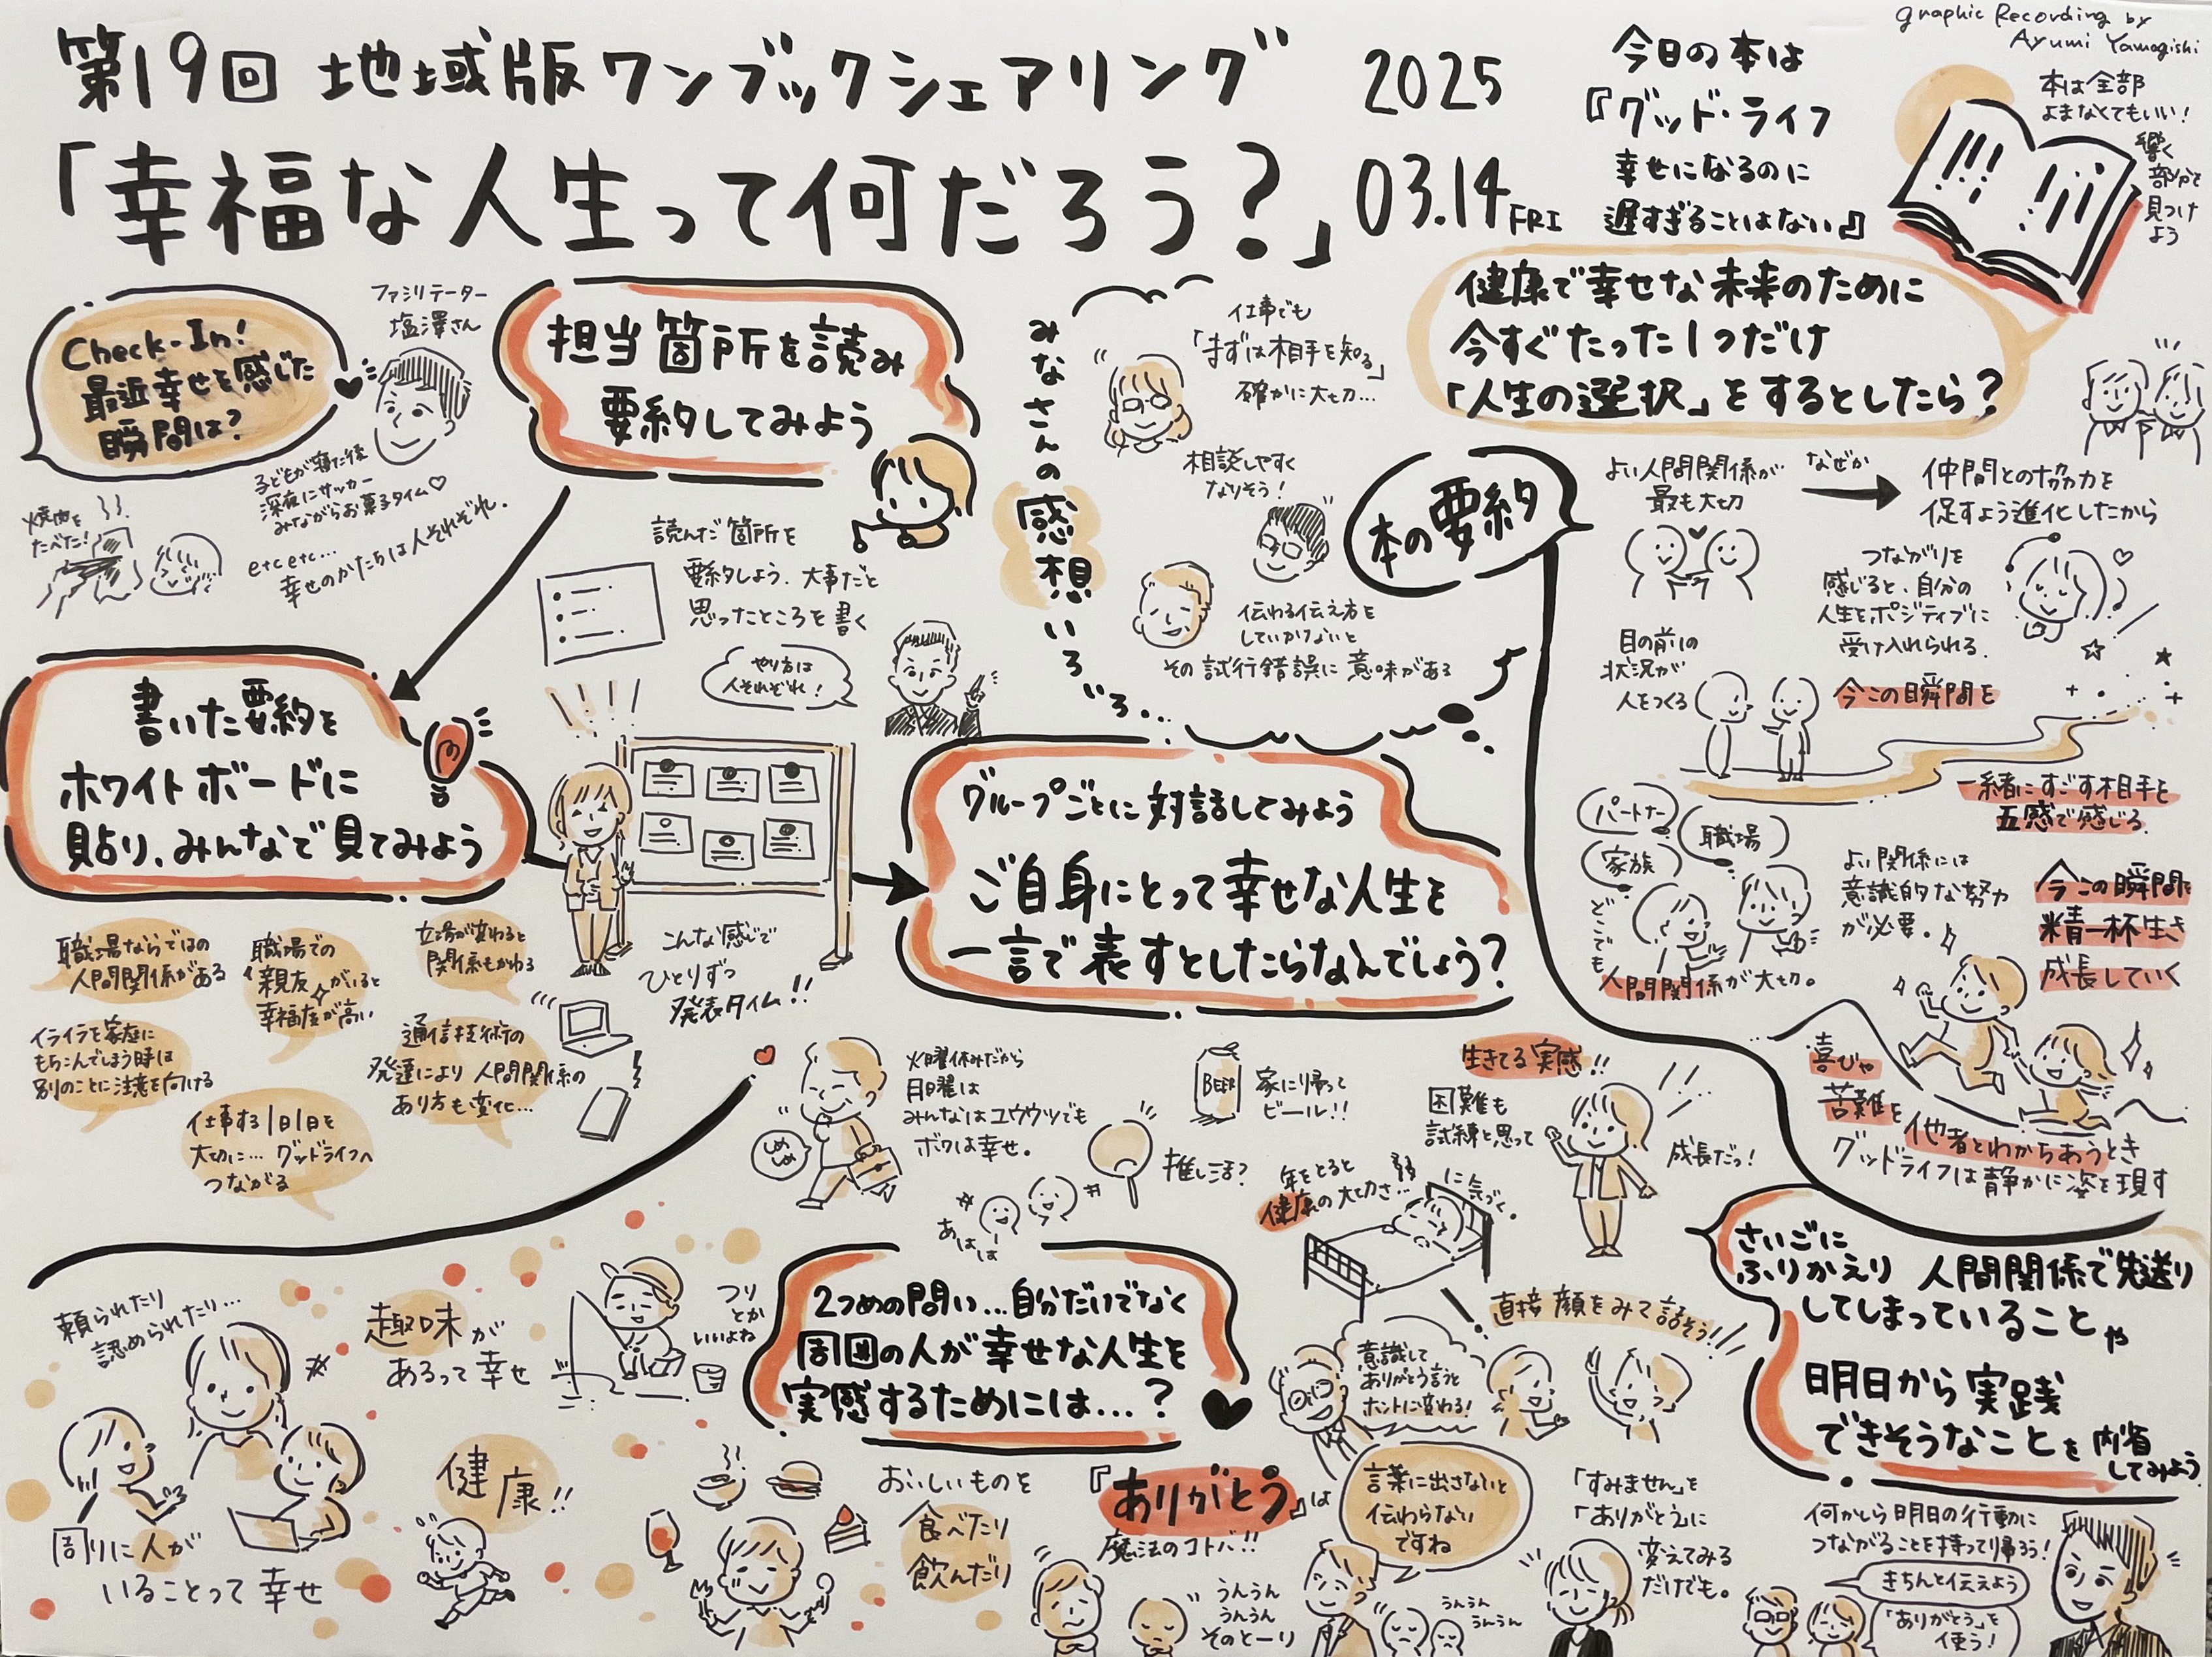 Graphic Recording by
Ayumi Yamagishi
第19回 地域版ワンブックシェアリング
「幸福な人生って何だろう?」
2025
03.14 FRI
今日の本は
『グッド・ライフ
幸せになるのに
遅すぎることはない』
本は全部
よまなくてもいい!
響く
部分を
見つけ
よう
Check-In!
最近幸せを感じた
瞬間は?
ファシリテーター
塩澤さん
焼肉を
たべた!
子どもが寝た後
深夜にサッカー
みながらお菓子タイム♡
etc etc...
幸せのかたちは人それぞれ.
担当箇所を読み
要約してみよう
読んだ箇所を
要約しよう. 大事だと
思ったところを書く
やり方は
人それぞれ!
書いた要約を
ホワイトボードに
貼り、みんなで見てみよう
こんな感じで
ひとりずつ
発表タイム!!
職場ならではの
人間関係がある
職場での
「親友」がいると
幸福度が高い
立場が変わると
関係もかわる
イライラを家庭に
もちこんでしまう時は
別のことに注意を向ける
通信技術の
発達により 人間関係の
あり方も変化...
仕事する1日1日を
大切に... グッドライフへ
つながる
みなさんの感想いろいろ...
仕事でも
「まずは相手を知る」
確かに大切...
相談しやすく
なりそう!
伝わる伝え方を
していかないと
その試行錯誤に意味がある
グループごとに対話してみよう
ご自身にとって幸せな人生を
一言で表すとしたらなんでしょう?
健康で幸せな未来のために
今すぐたった1つだけ
「人生の選択」をするとしたら?
本の要約
よい人間関係が
最も大切
なぜか
仲間との協力を
促すよう進化したから
つながりを
感じると、自分の
人生をポジティブに
受け入れられる.
目の前の
状況が
人をつくる
今この瞬間を
一緒にすごす相手を
五感で感じる.
パートナー
職場
家族
どこでも
人間関係が大切。
よい関係には
意識的な努力
が必要.
今この瞬間を
精一杯生き
成長していく
喜びや
苦難を他者とわかちあうとき
グッドライフは静かに姿を現す
しめしめ
火曜休みだから
月曜は
みんなはユウウツでも
ボクは幸せ.
BEER
家に帰って
ビール!!
推し活?
あはは
生きてる実感!!
困難も
試練と思って
成長だっ!
年をとると
健康の大切さ...
に気づく。
頼られたり
認められたり...
周りに人が
いることって幸せ
趣味が
あるって幸せ
つり
とか
いいよね
健康!!
おいしいものを
食べたり
飲んだり
2つめの問い...自分だけでなく
周囲の人が幸せな人生を
実感するためには...?
直接 顔をみて話そう!!
意識して
ありがとう言うと
ホントに変わる!
『ありがとう』は
魔法のコトバ!!
言葉に出さないと
伝わらない
ですね
うんうん
うんうん
そのとーり
うんうん
うんうん
「すみません」を
「ありがとう」に
変えてみる
だけでも。
さいごに
ふりかえり 人間関係で先送り
してしまっていることや
明日から実践
できそうなことを 内省
してみよう
何かしら明日の行動に
つながることを持って帰ろう!
きちんと伝えよう
「ありがとう」を
使う!